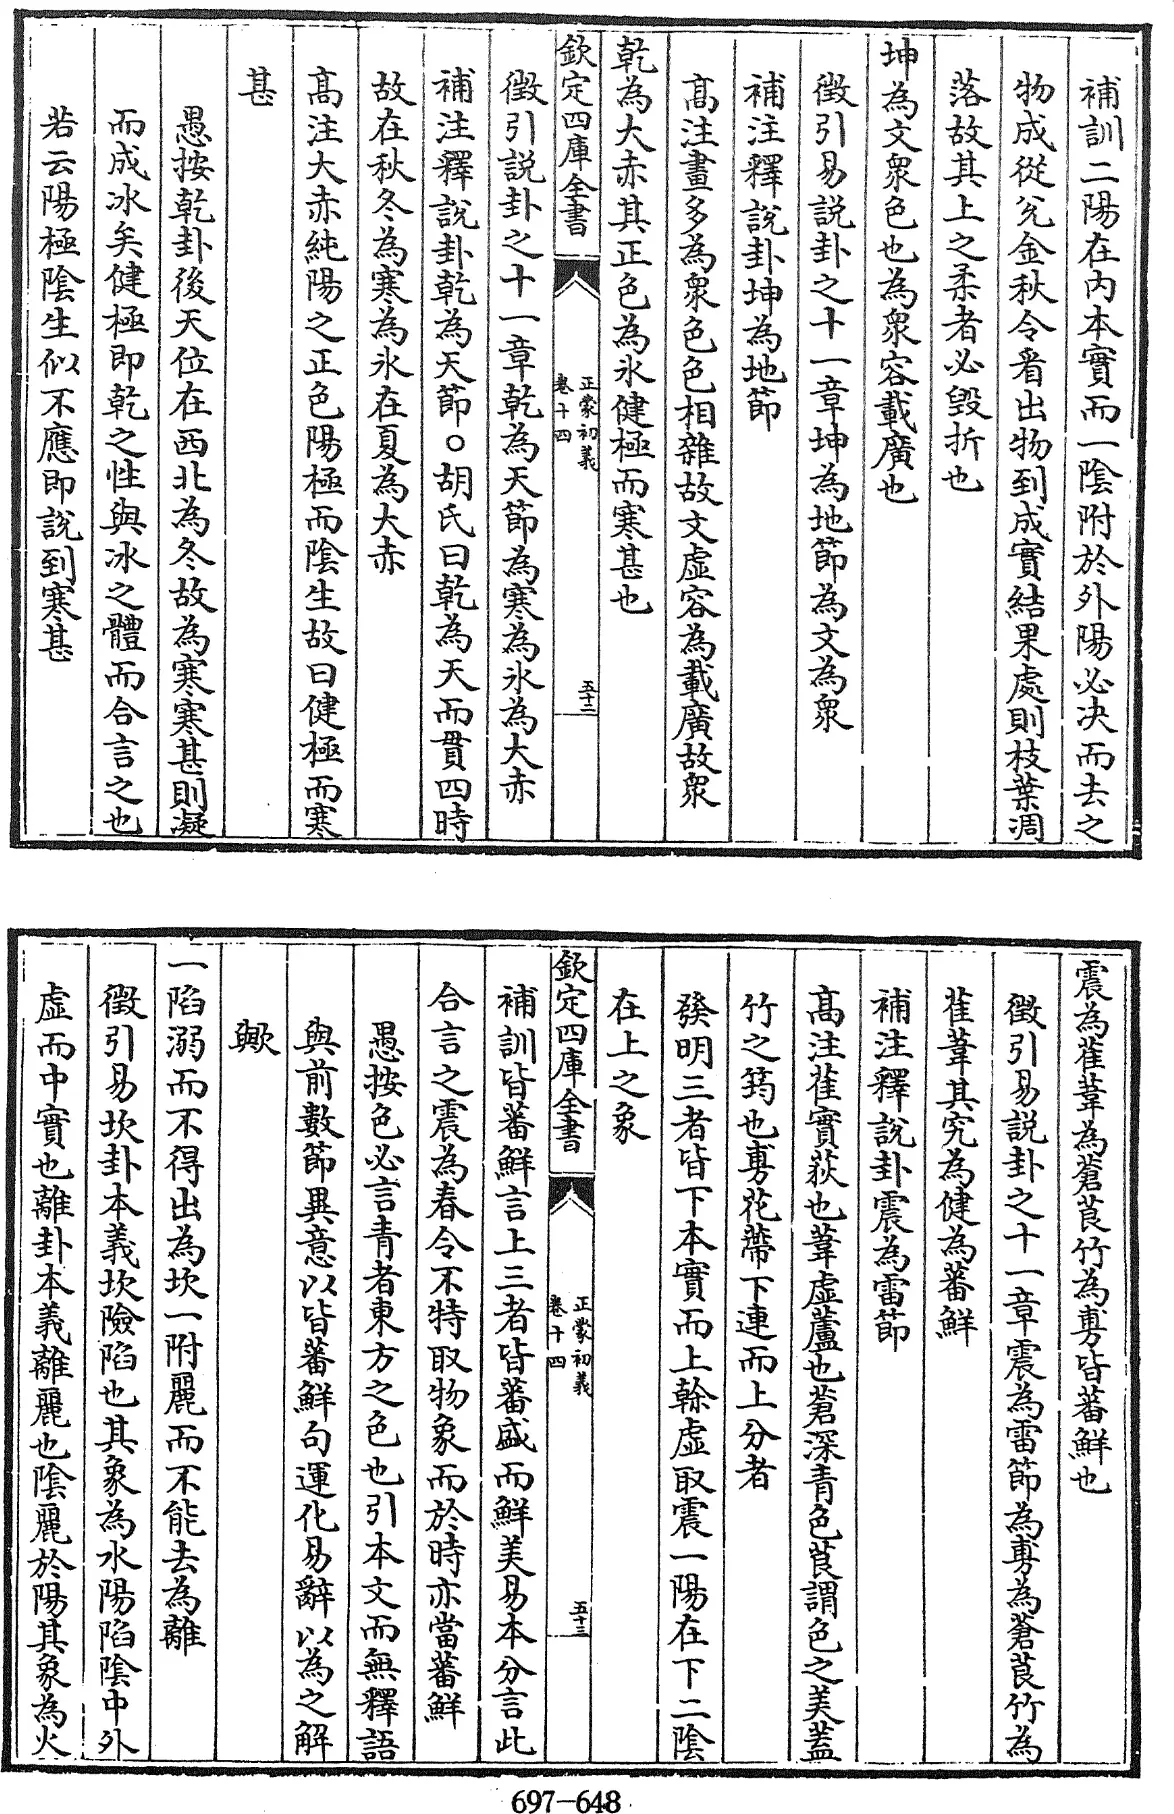 補訓二陽在内本實而一陰附於外陽必决而去之
物成從兊金秋令看出物到成實結果處則枝葉凋
落故其上之柔者必毀折也
坤為文衆色也為衆容載廣也
徵引易説卦之十一章坤為地節為文為衆
補注釋說卦坤為地節
髙注畫多為衆色色相雜故文虚容為載廣故衆
乾為大赤其正色為氷健極而寒甚也
欽定四庫全書
正蒙初義
卷十四
五十二
徵引説卦之十一章乾為天節為寒為氷為大赤
補注釋說卦乾為天節○胡氏曰乾為天而貫四時
故在秋冬為寒為氷在夏為大赤
髙注大赤純陽之正色陽極而陰生故曰健極而寒
甚
愚按乾卦後天位在西北為冬故為寒寒甚則凝
而成冰矣健極即乾之性與冰之體而合言之也
若云陽極陰生似不應即說到寒甚
震為萑葦為蒼莨竹為旉皆蕃鮮也
徵引易説卦之十一章震為雷節為旉為蒼莨竹為
萑葦其究為健為蕃鮮
補注釋說卦震為雷節
髙注萑實荻也葦虚蘆也蒼深青色莨謂色之美葢
竹之筠也旉花蔕下連而上分者
發明三者皆下本實而上幹虚取震一陽在下二陰
在上之象
欽定四庫全書
正蒙初義
卷十四
五十三
補訓皆蕃鮮言上三者皆蕃盛而鮮美易本分言此
合言之震為春令不特取物象而於時亦當蕃鮮
愚按色必言青者東方之色也引本文而無釋語
與前數節異意以皆蕃鮮句運化易辭以為之解
歟
一陷溺而不得出為坎一附麗而不能去為離
徵引易坎卦本義坎險陷也其象為水陽陷陰中外
虚而中實也離卦本義離麗也陰麗於陽其象為火
697-648